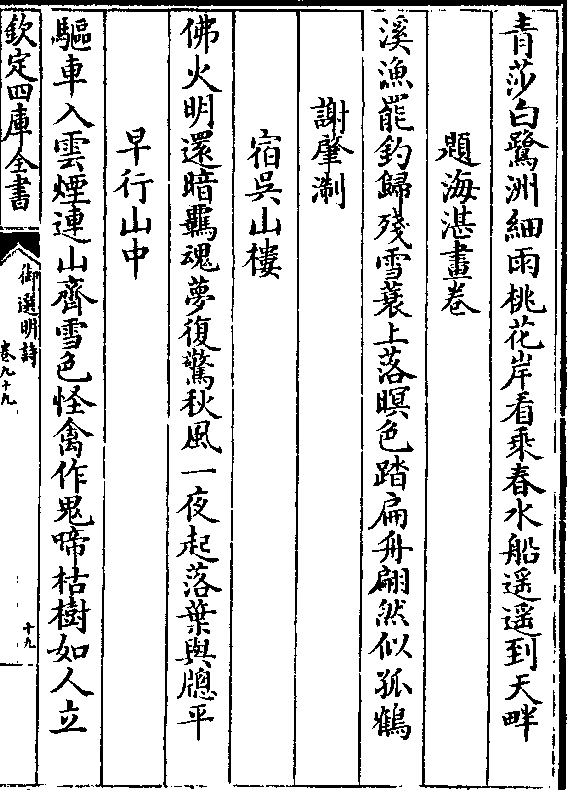 青莎白鷺洲細雨桃花岸看乘春水船遥遥到天畔
題海湛畫卷
溪漁罷釣歸殘雪蓑上落暝色踏扁舟翩然似孤鶴
謝肇淛
宿吳山樓
佛火明還暗羈魂夢復驚秋風一夜起落葉與牕平
早行山中
驅車入雲煙連山齊雪色怪禽作鬼啼枯樹如人立
欽定四庫全書
御選明詩
卷九十九
十九